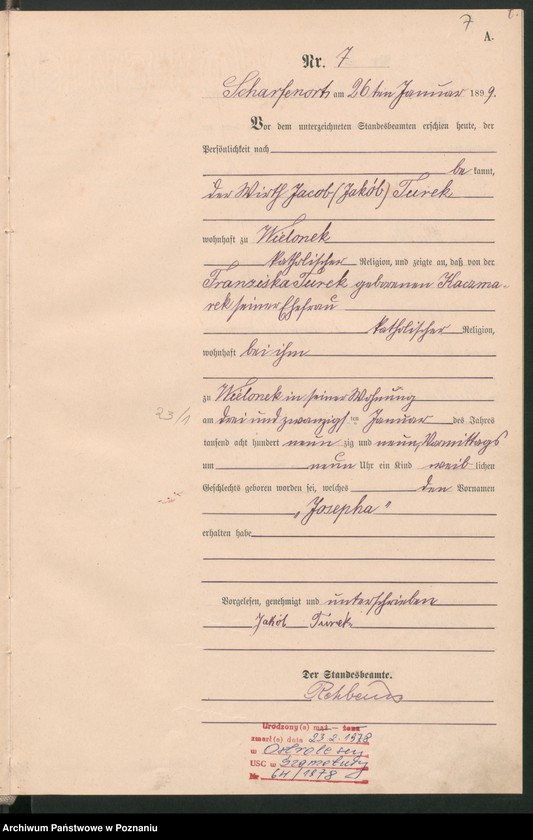 7
A.
Nr. 7
Scharfenort, am 26ten Januar 1899.
Vor dem unterzeichneten Standesbeamten erschien heute, der
Persönlichkeit nach
be kannt,
der Wirth Jacob (Jakób) Turek
wohnhaft zu Wielonek
katholischer Religion, und zeigte an, daß von der
Franziska Turek geborenen Kaczma-
rek seiner Ehefrau
katholischer Religion,
wohnhaft bei ihm
zu Wielonek in seiner Wohnung
23/1
am drei und zwanzigsten Januar des Jahres
tausend acht hundert neun zig und neun, Vormittags
um neun Uhr ein Kind weib lichen
Geschlechts geboren worden sei, welches den Vornamen
„Josepha"
erhalten habe
Vorgelesen, genehmigt und unterschrieben
Jakób Turek
Der Standesbeamte.
Urodzony(e) mąż – żona
zmarł(a) dnia 23.2.1978
w
USC w Szamotuły
Nr 64/1978
Archiwum Państwowe w Poznaniu